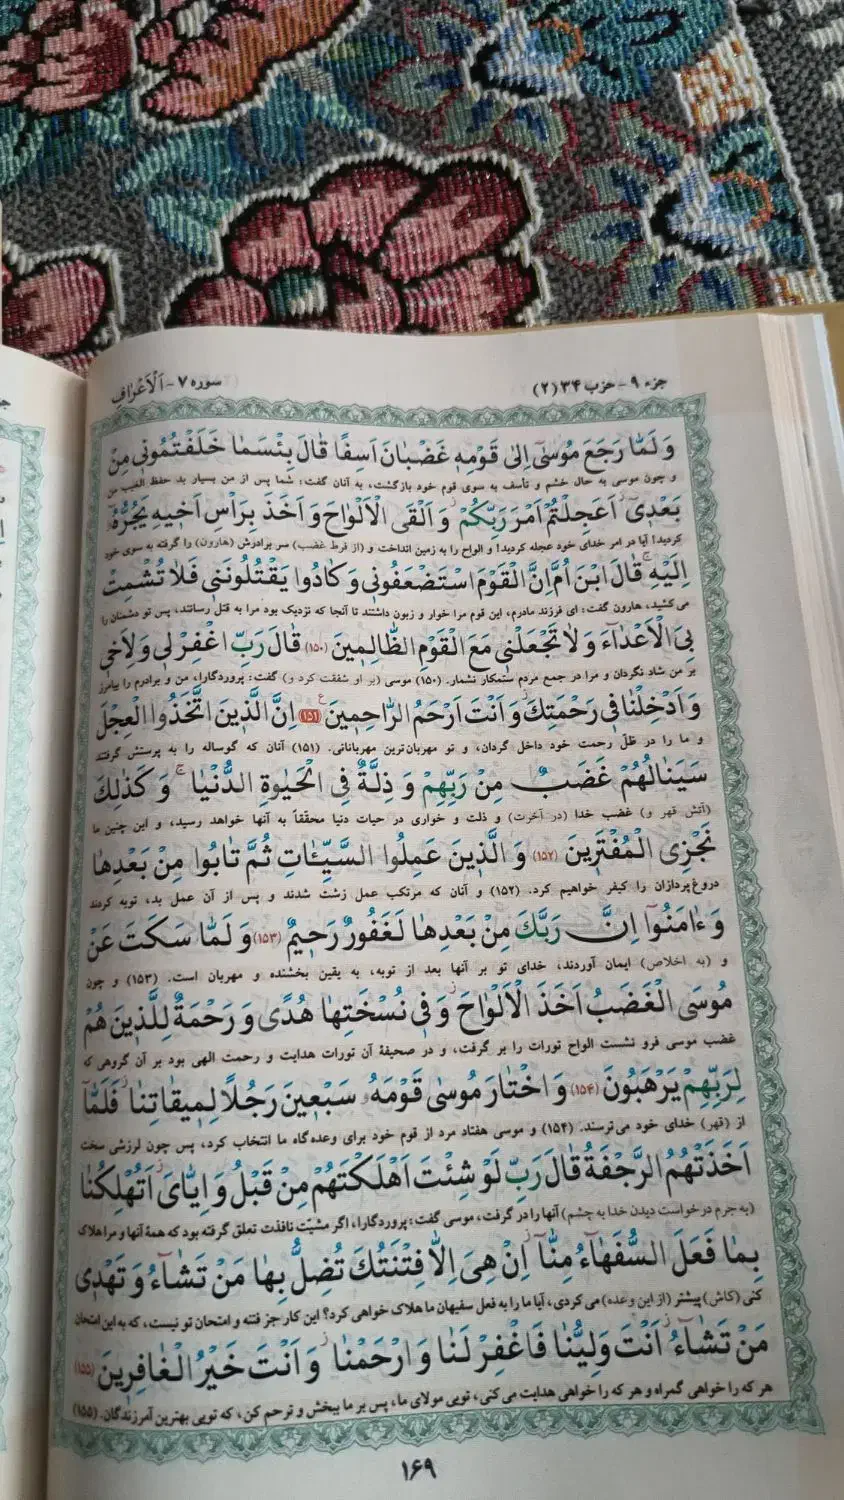 جزء ۹ - حزب ۳۴ (۲)
سوره ۷ - اَلْاَعْرٰافِ
وَ لَمّٰا رَجَعَ مُوسىٰٓ اِلىٰ قَوْمِهٖ غَضْبٰانَ اَسِفًا قٰالَ بِئْسَمٰا خَلَفْتُمُونٖى مِنْ
و چون موسی به حال خشم و تأسف به سوی قوم خود بازگشت، به آنان گفت: شما پس از من بسیار بد حفظ الغیب من
بَعْدٖىٓ اَعَجِلْتُمْ اَمْرَ رَبِّكُمْ وَ اَلْقَى الْاَلْوٰاحَ وَ اَخَذَ بِرَاْسِ اَخٖيهِ يَجُرُّهُٓ
کردید! آیا در امر خدای خود عجله کردید! و الواح را به زمین انداخت و (از فرط غضب) سر برادرش (هارون) را گرفته به سوی خود
اِلَيْهِ قٰالَ ابْنَ اُمَّ اِنَّ الْقَوْمَ اسْتَضْعَفُونٖى وَ كٰادُوا يَقْتُلُونَنٖى فَلٰا تُشْمِتْ
می‌کشید، هارون گفت: ای فرزند مادرم، این قوم مرا خوار و زبون داشتند تا آنجا که نزدیک بود مرا به قتل رسانند، پس تو دشمنان را
بِىَ الْاَعْدٰٓاءَ وَ لٰا تَجْعَلْنٖى مَعَ الْقَوْمِ الظّٰالِمٖينَ (۱۵۰) قٰالَ رَبِّ اغْفِرْ لٖى وَ لِاَخٖى
بر من شاد نگردان و مرا در جمع مردم ستمکار نشمار. (۱۵۰) موسی (بر او شفقت کرد و) گفت: پروردگارا، من و برادرم را بیامرز
وَ اَدْخِلْنٰا فٖى رَحْمَتِكَ وَ اَنْتَ اَرْحَمُ الرّٰاحِمٖينَ (۱۵۱) اِنَّ الَّذٖينَ اتَّخَذُوا الْعِجْلَ
و ما را در ظلّ رحمت خود داخل گردان، و تو مهربان‌ترین مهربانانی. (۱۵۱) آنان که گوساله را به پرستش گرفتند
سَيَنٰالُهُمْ غَضَبٌ مِنْ رَبِّهِمْ وَ ذِلَّةٌ فِى الْحَيٰوةِ الدُّنْيٰا وَ كَذٰلِكَ
(آتش قهر و) غضب خدا (در آخرت) و ذلت و خواری در حیات دنیا محققاً به آنها خواهد رسید، و این چنین ما
نَجْزِى الْمُفْتَرٖينَ (۱۵۲) وَ الَّذٖينَ عَمِلُوا السَّيِّـٰٔاتِ ثُمَّ تٰابُوا مِنْ بَعْدِهٰا
دروغ‌پردازان را کیفر خواهیم کرد. (۱۵۲) و آنان که مرتکب عمل زشت شدند و پس از آن عمل بد، توبه کردند
وَ ءٰامَنُوٓا اِنَّ رَبَّكَ مِنْ بَعْدِهٰا لَغَفُورٌ رَحٖيمٌ (۱۵۳) وَ لَمّٰا سَكَتَ عَنْ
و (به اخلاص) ایمان آوردند، خدای تو بر آنها بعد از توبه، به یقین بخشنده و مهربان است. (۱۵۳) و چون
مُوسَى الْغَضَبُ اَخَذَ الْاَلْوٰاحَ وَ فٖى نُسْخَتِهٰا هُدًى وَ رَحْمَةٌ لِلَّذٖينَ هُمْ
غضب موسی فرو نشست الواح تورات را بر گرفت، و در صحیفهٔ آن تورات هدایت و رحمت الهی بود بر آن گروهی که
لِرَبِّهِمْ يَرْهَبُونَ (۱۵۴) وَ اخْتٰارَ مُوسىٰ قَوْمَهُ سَبْعٖينَ رَجُلًا لِمٖيقٰاتِنٰا فَلَمّٰٓا
از (قهر) خدای خود می‌ترسند. (۱۵۴) و موسی هفتاد مرد از قوم خود برای وعده‌گاه ما انتخاب کرد، پس چون لرزشی سخت
اَخَذَتْهُمُ الرَّجْفَةُ قٰالَ رَبِّ لَوْ شِئْتَ اَهْلَكْتَهُمْ مِنْ قَبْلُ وَ اِيّٰاىَ اَتُهْلِكُنٰا
(به جرم درخواست دیدن خدا به چشم) آنها را در گرفت، موسی گفت: پروردگارا، اگر مشیّت نافذت تعلق گرفته بود که همهٔ آنها و مرا هلاک
بِمٰا فَعَلَ السُّفَهٰٓاءُ مِنّٰٓا اِنْ هِىَ اِلّٰا فِتْنَتُكَ تُضِلُّ بِهٰا مَنْ تَشٰٓاءُ وَ تَهْدٖى
کنی (کاش) پیشتر (از این وعده) می‌کردی، آیا ما را به فعل سفیهان ما هلاک خواهی کرد؟ این کار جز فتنه و امتحان تو نیست، که به این امتحان
مَنْ تَشٰٓاءُ اَنْتَ وَلِيُّنٰا فَاغْفِرْ لَنٰا وَ ارْحَمْنٰا وَ اَنْتَ خَيْرُ الْغٰافِرٖينَ (۱۵۵)
هر که را خواهی گمراه و هر که را خواهی هدایت می‌کنی، تویی مولای ما، پس بر ما ببخش و ترحم کن، که تویی بهترین آمرزندگان. (۱۵۵)
۱۶۹